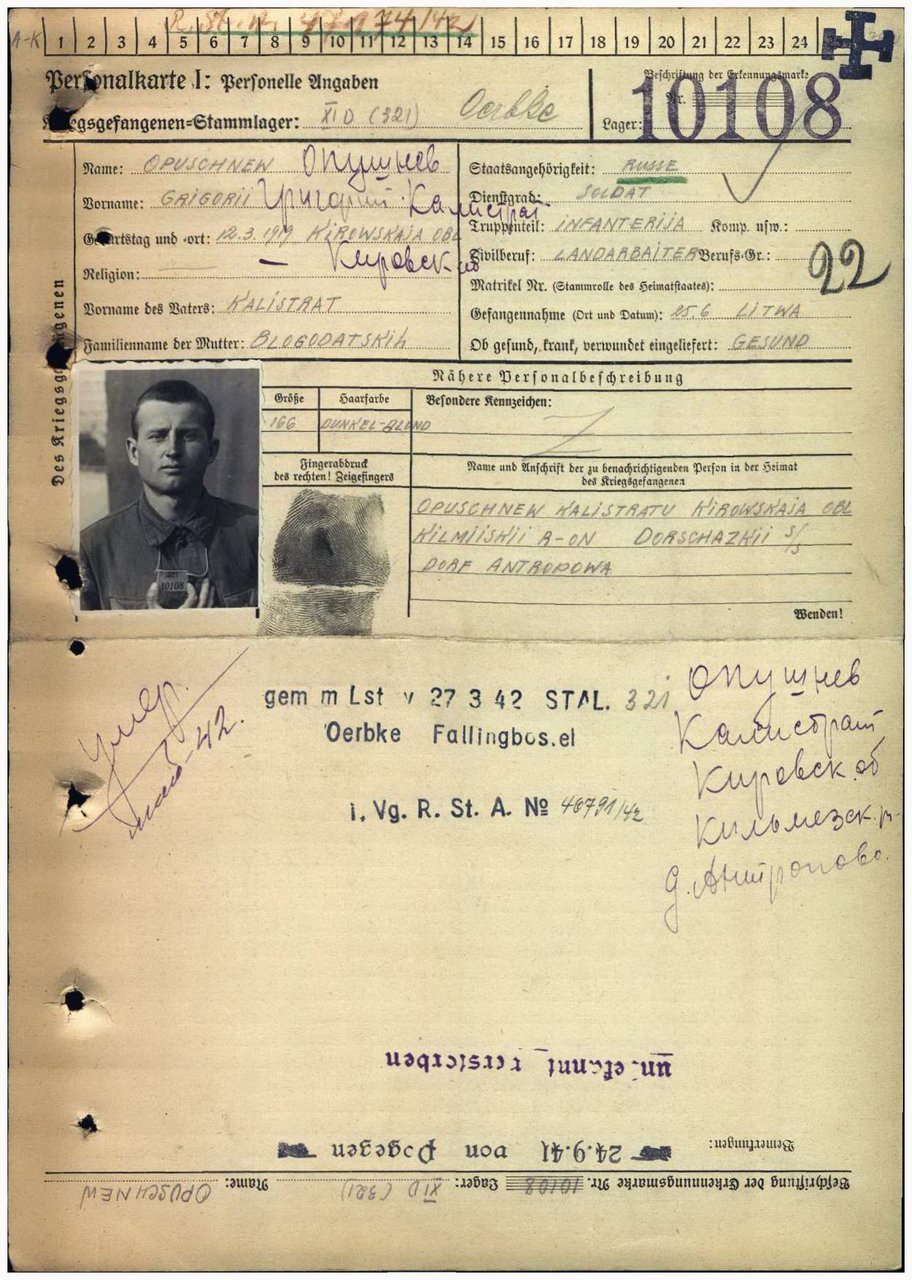 R. St. № 47974/42
A-K 1 2 3 4 5 6 7 8 9 10 11 12 13 14 15 16 17 18 19 20 21 22 23 24
Personalkarte I: Personelle Angaben
Beschriftung der Erkennungsmarke
Nr. 10108
Kriegsgefangenen-Stammlager: XI D (321) Oerbke
Lager:
Des Kriegsgefangenen
Name: OPUSCHNEW Опушнев
Vorname: GRIGORII Григорий Калистрат
Geburtstag und -ort: 12.3.1919 KIROWSKAJA OBL
Кировск об
Religion: —
Vorname des Vaters: KALISTRAT
Familienname der Mutter: BLOGODATSKIH
Staatsangehörigkeit: RUSSE
Dienstgrad: SOLDAT
Truppenteil: INFANTERIJA Komp. usw.:
Zivilberuf: LANDARBAITER Berufs-Gr.: 22
Matrikel Nr. (Stammrolle des Heimatstaates):
Gefangennahme (Ort und Datum): 25.6 LITWA
Ob gesund, krank, verwundet eingeliefert: GESUND
Nähere Personalbeschreibung
Größe Haarfarbe Besondere Kennzeichen:
166 DUNKEL-BLOND
Fingerabdruck
des rechten! Zeigefingers
Name und Anschrift der zu benachrichtigenden Person in der Heimat
des Kriegsgefangenen
OPUSCHNEW KALISTRATU KIROWSKAJA OBL
KILMIISKII R-ON DORSCHAZKII S/S
DORF ANTROPOWA
10108
Wenden!
умер.
42.
gem m Lst v 27 3 42 STAL. 321
Oerbke Fallingbos.el
i. Vg. R. St. A. № 46791/42
Опушнев
Калистрат
Кировск. об
Кильмезск. р-
д. Антропово.
un.ekannt verstorben
Bemerkungen:
24.9.41 von Pogegen
Beschriftung der Erkennungsmarke Nr. 10108 Lager: XI D (321) Name: OPUSCHNEW